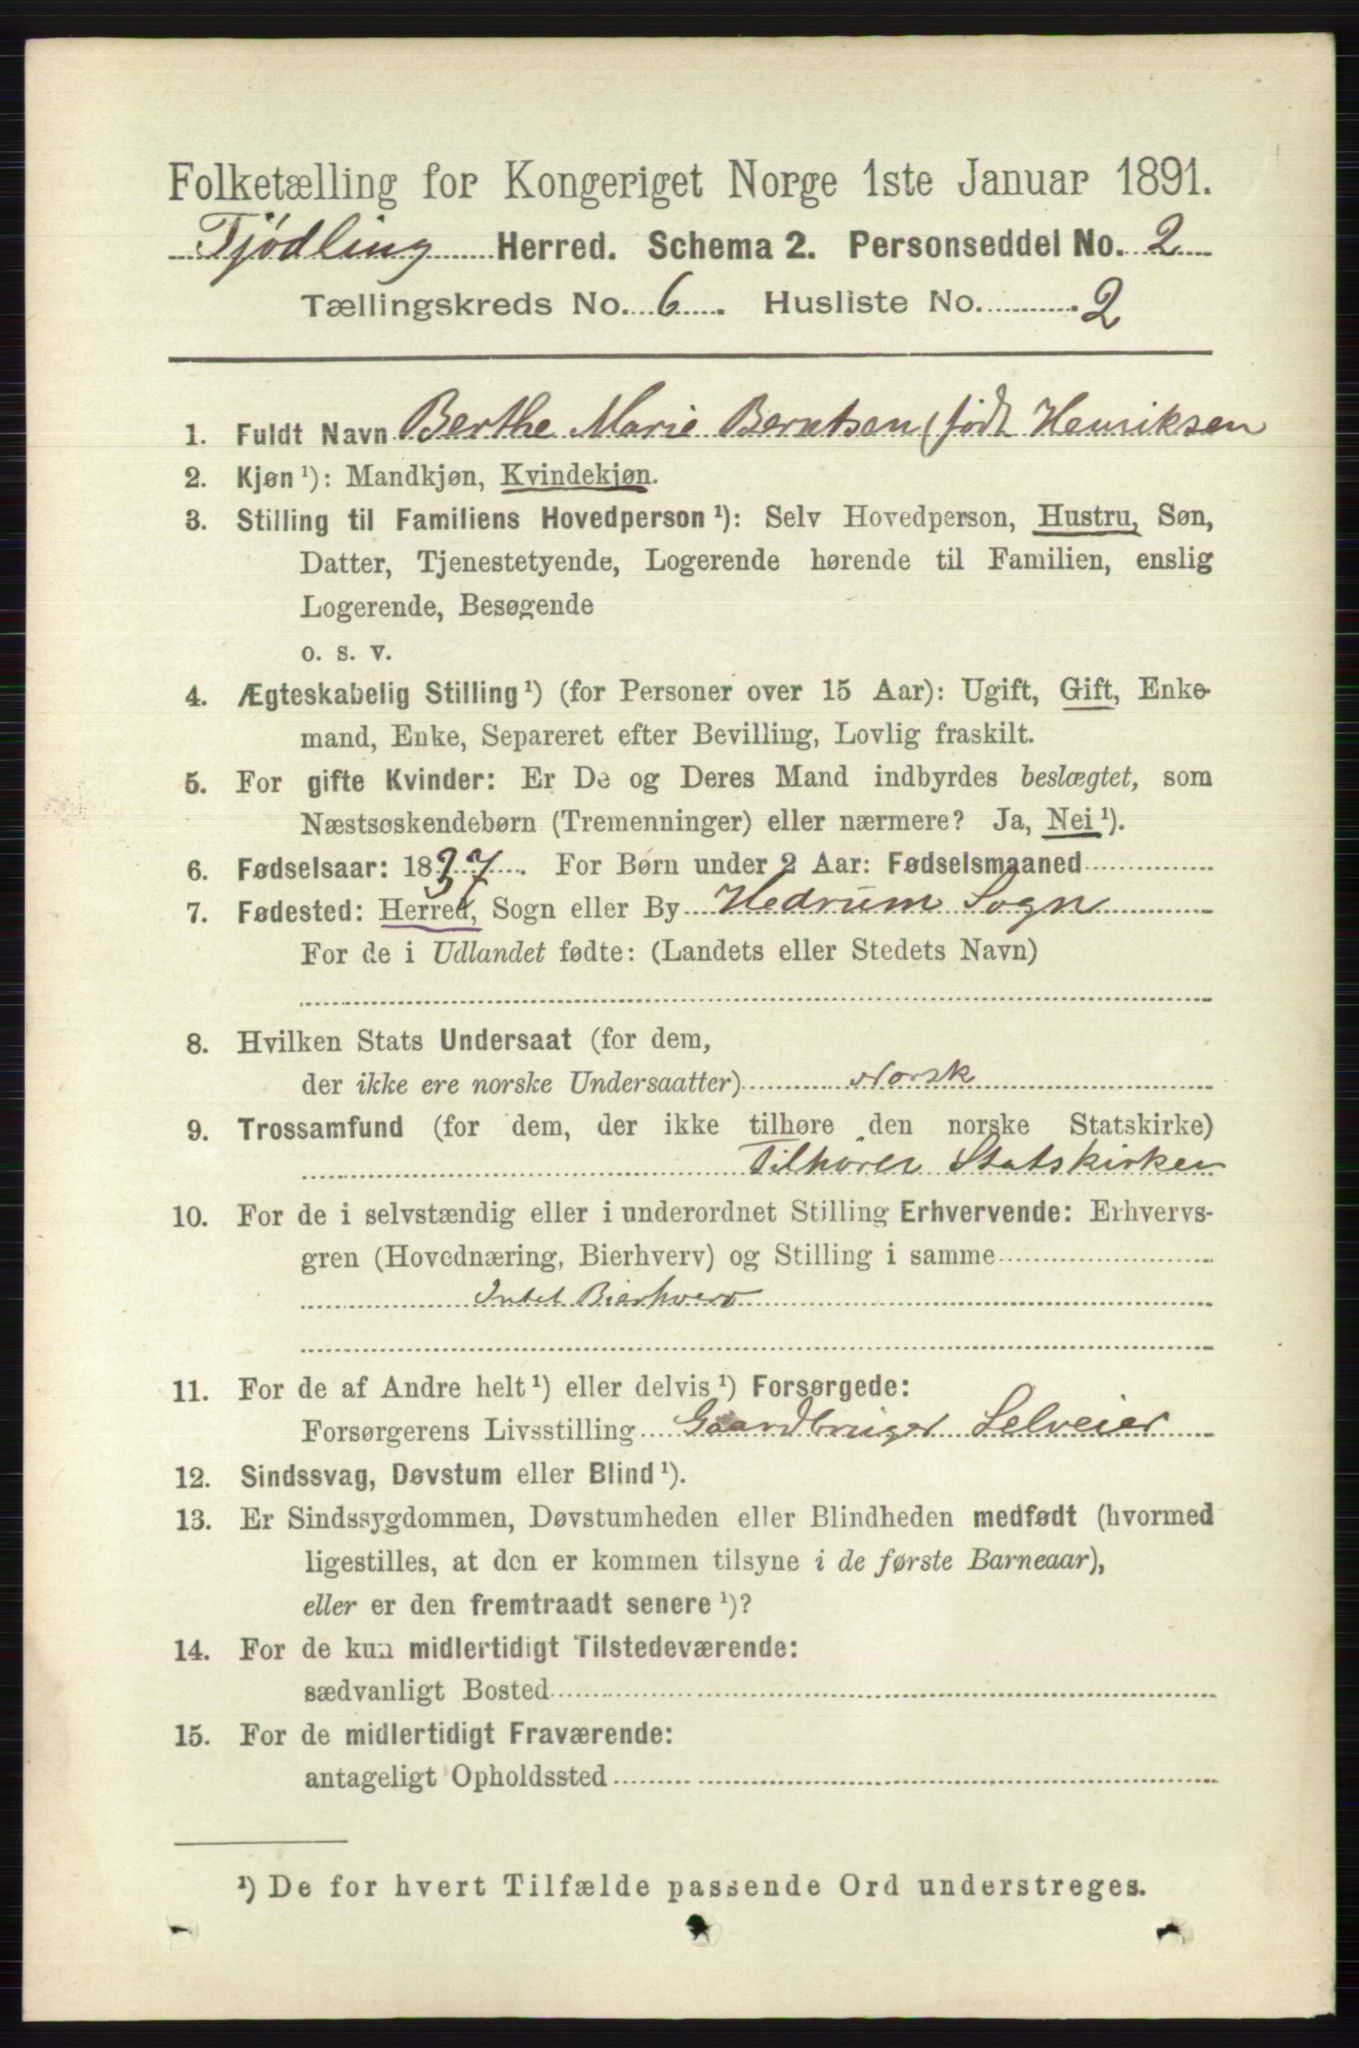 Folketælling for Kongeriget Norge 1ste Januar 1891.
Tjødling Herred. Schema 2. Personseddel No. 2
Tællingskreds No. 6. Husliste No. 2
1. Fuldt Navn Berthe Marie Berntsen (født Henriksen
2. Kjøn ¹): Mandkjøn, Kvindekjøn.
3. Stilling til Familiens Hovedperson ¹): Selv Hovedperson, Hustru, Søn,
Datter, Tjenestetyende, Logerende hørende til Familien, enslig
Logerende, Besøgende
o. s. v.
4. Ægteskabelig Stilling ¹) (for Personer over 15 Aar): Ugift, Gift, Enke-
mand, Enke, Separeret efter Bevilling, Lovlig fraskilt.
5. For gifte Kvinder: Er De og Deres Mand indbyrdes beslægtet, som
Næstsøskendebørn (Tremenninger) eller nærmere? Ja, Nei ¹).
6. Fødselsaar: 1837. For Børn under 2 Aar: Fødselsmaaned
7. Fødested: Herred, Sogn eller By Hedrum Sogn
For de i Udlandet fødte: (Landets eller Stedets Navn)
8. Hvilken Stats Undersaat (for dem,
der ikke ere norske Undersaatter) Norsk
9. Trossamfund (for dem, der ikke tilhøre den norske Statskirke)
Tilhører Statskirken
10. For de i selvstændig eller i underordnet Stilling Erhvervende: Erhvervs-
gren (Hovednæring, Bierhverv) og Stilling i samme
Intet Bierhverv
11. For de af Andre helt ¹) eller delvis ¹) Forsørgede:
Forsørgerens Livsstilling Gaardbruger Selveier
12. Sindssvag, Døvstum eller Blind ¹).
13. Er Sindssygdommen, Døvstumheden eller Blindheden medfødt (hvormed
ligestilles, at den er kommen tilsyne i de første Barneaar),
eller er den fremtraadt senere ¹)?
14. For de kun midlertidigt Tilstedeværende:
sædvanligt Bosted
15. For de midlertidigt Fraværende:
antageligt Opholdssted
¹) De for hvert Tilfælde passende Ord understreges.